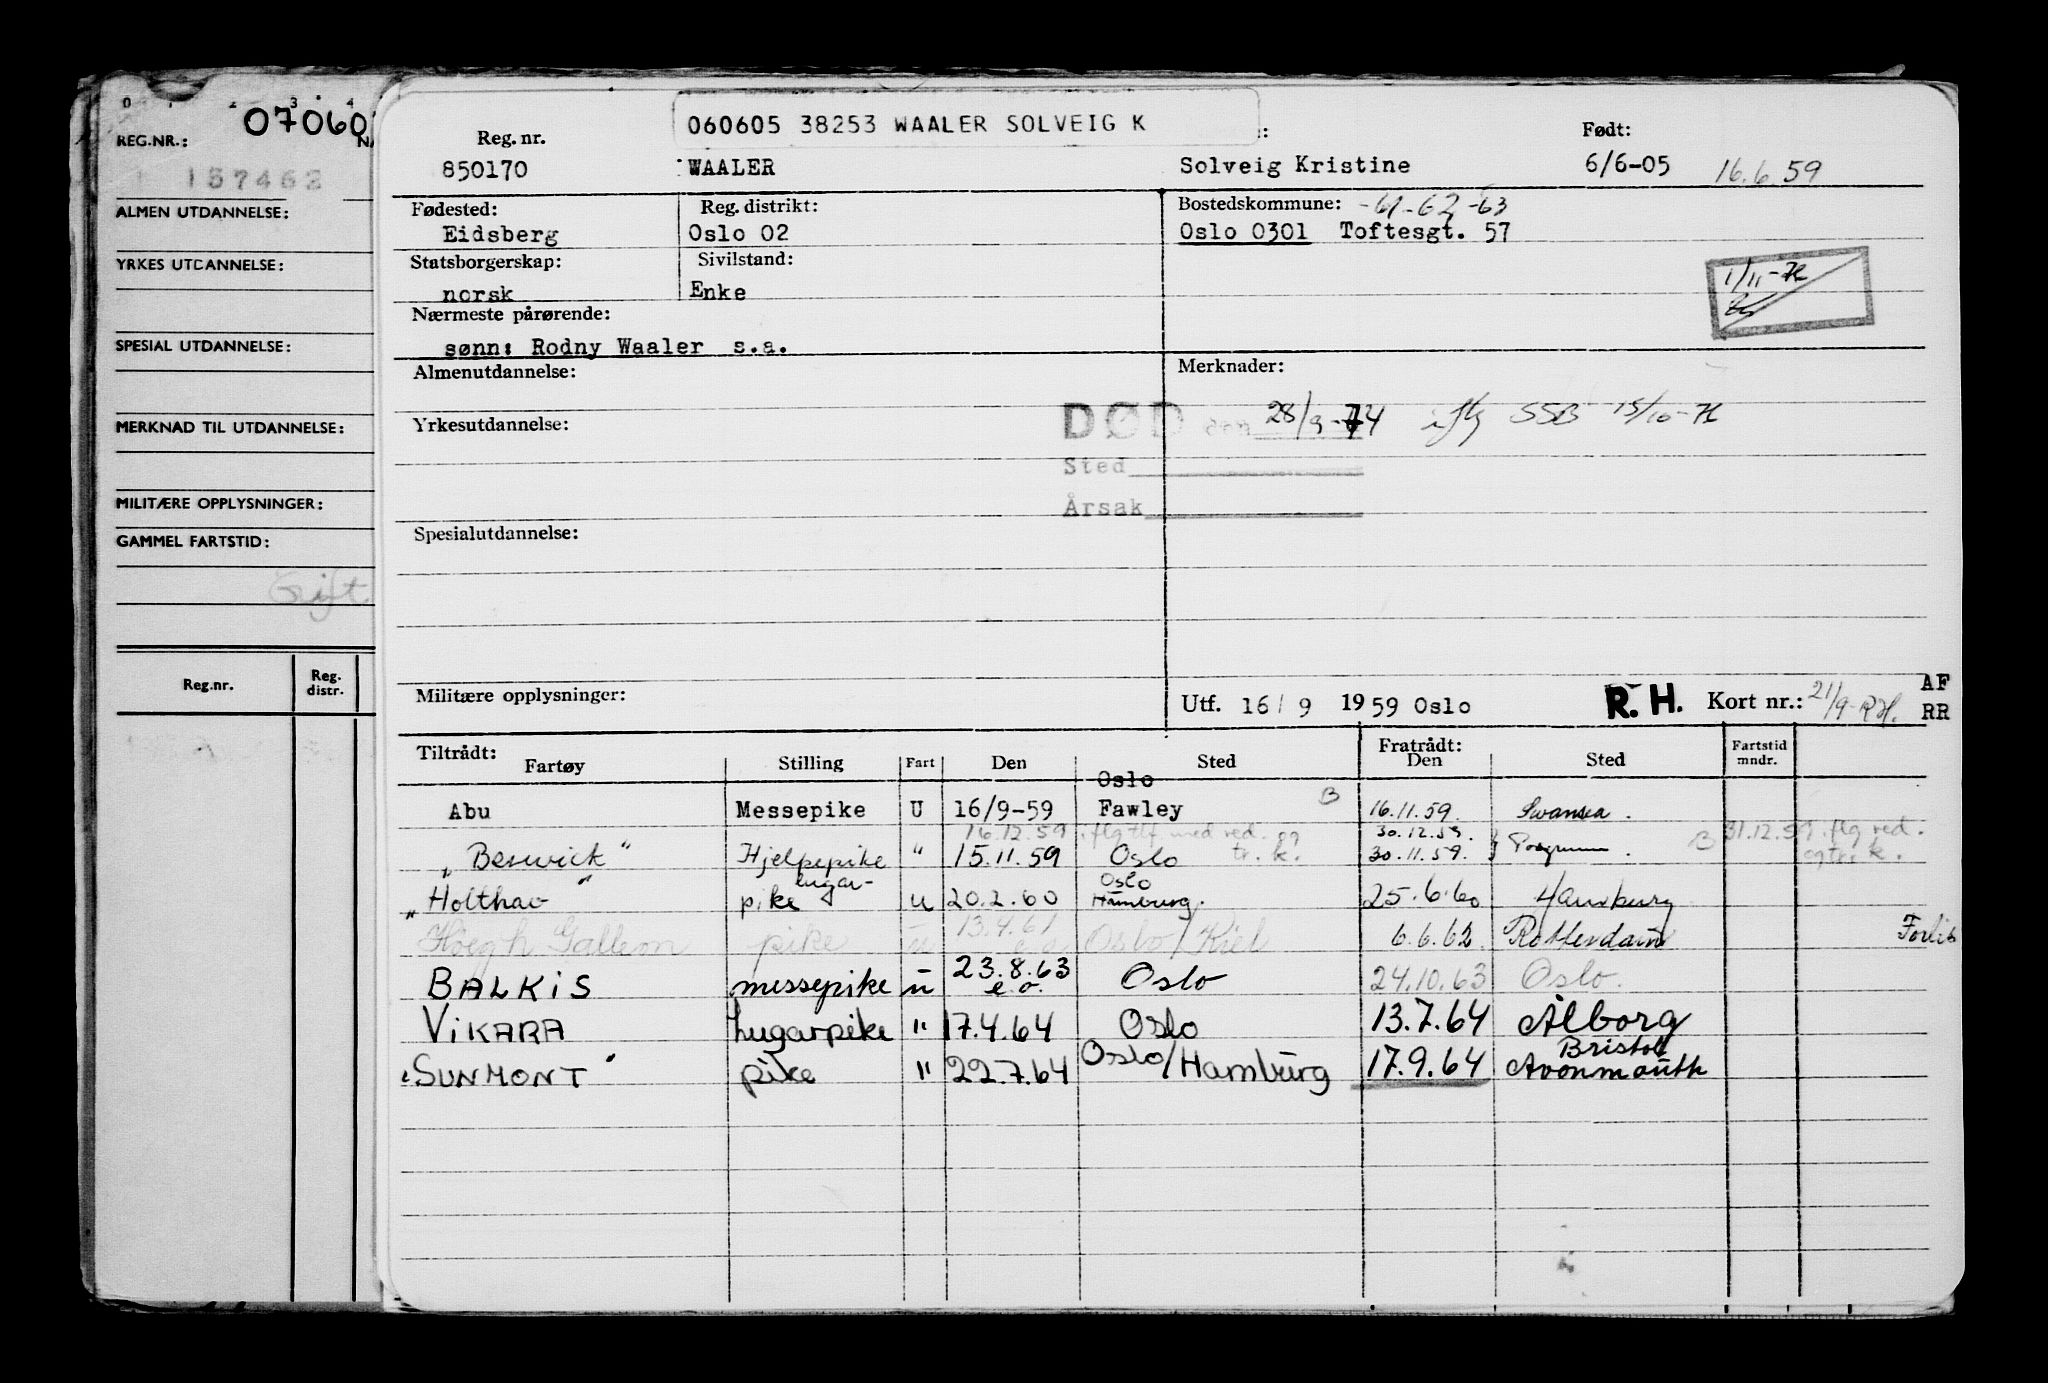 0 1 2 3 4
REG.NR.: 07060
157462
ALMEN UTDANNELSE:
YRKES UTDANNELSE:
SPESIAL UTDANNELSE:
MERKNAD TIL UTDANNELSE:
MILITÆRE OPPLYSNINGER:
GAMMEL FARTSTID:
Gift
Reg.nr. Reg. distr.
060605 38253 WAALER SOLVEIG K
Reg. nr. Født:
850170 WAALER Solveig Kristine 6/6-05 16.6.59
Fødested: Reg. distrikt: Bostedskommune: -61-62-63
Eidsberg Oslo 02 Oslo 0301 Toftesgt. 57
Statsborgerskap: Sivilstand:
norsk Enke
1/11-74
Nærmeste pårørende:
sønn: Rodny Waaler s.a.
Almenutdannelse: Merknader:
DØD den 28/9-74 iflg SSB 15/10-74
Yrkesutdannelse:
Sted
Årsak
Spesialutdannelse:
Militære opplysninger: Utf. 16/9 1959 Oslo R.H. Kort nr.: 21/9-R.H. AF
RR
Tiltrådt: Fartøy Stilling Fart Den Sted Fratrådt: Den Sted Fartstid mndr.
Oslo
Abu Messepike U 16/9-59 Fawley B 16.11.59. Swansea.
16.12.59 iflg tlf. med red. og tr.k. 30.12.59. 31.12.59 iflg red. og tr.k.
"Berwick" Hjelpepike " 15.11.59 Oslo 30.11.59. B
"Holthav" lugar-pike u 20.2.60 Oslo Hamburg. 25.6.60 Hamburg
Høegh Galleon pike u 13.4.61 e.o. Oslo/Kiel 6.6.62 Rotterdam
BALKIS messepike u 23.8.63 e.o. Oslo 24.10.63 Oslo.
VIKARA Lugarpike " 17.4.64 Oslo 13.7.64 Ålborg
"SUNMONT" pike " 22.7.64 Oslo/Hamburg 17.9.64 Bristol Avonmouth